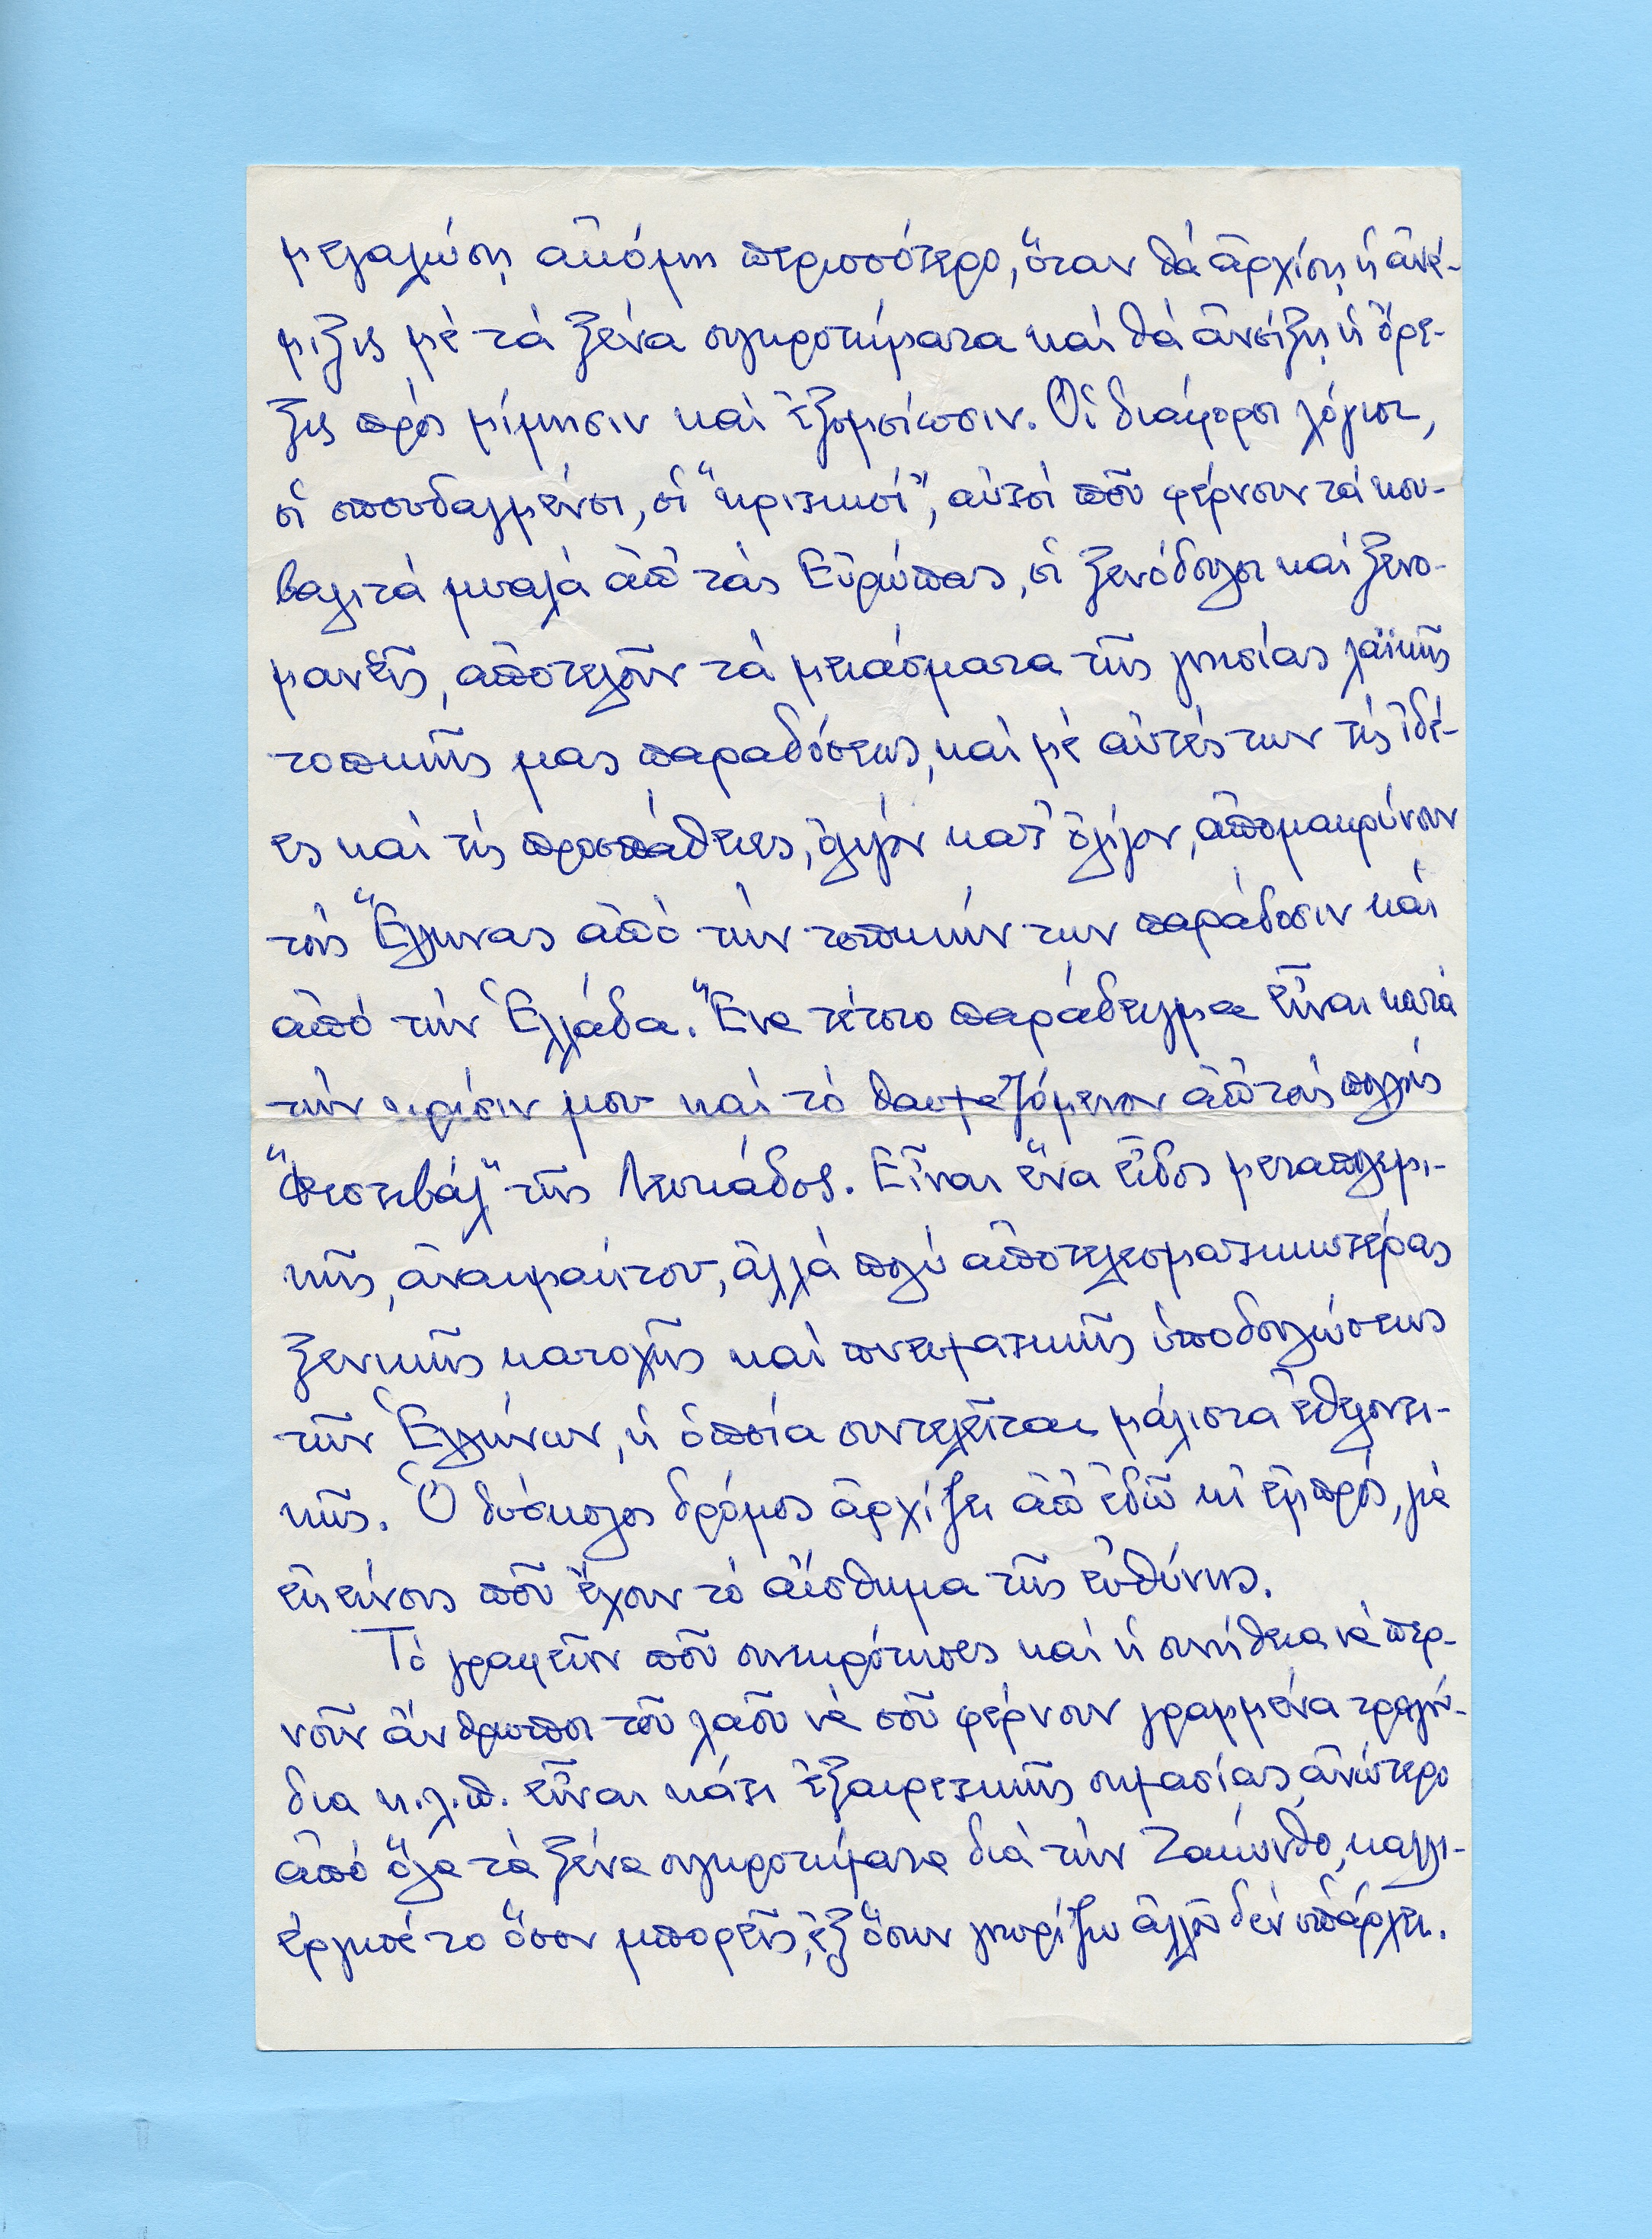 μεγαλώσῃ ἀκόμη περισσότερο, ὅταν θά ἀρχίσῃ ἡ ἀνά-
μιξις μέ τά ξένα συγκροτήματα καί θά ἀνοίξῃ ἡ ὄρε-
ξις πρός μίμησιν καί ἐξομοίωσιν. Οἱ διάφοροι λόγιοι,
οἱ σπουδαγμένοι, οἱ "κριτικοί", αὐτοί ποῦ φέρνουν τά κου-
βαλιτά μυαλά ἀπ' τάς Εὐρώπας, οἱ ξενόδουλοι καί ξενο-
μανεῖς, ἀποτελοῦν τά μιάσματα τῆς γνησίας λαϊκῆς
τοπικῆς μας παραδόσεως, καί μέ αὐτές των τίς ἰδέ-
ες καί τίς προσπάθειες, ὀλίγον κατ' ὀλίγον, ἀπομακρύνουν
τούς Ἕλληνας ἀπό τήν τοπικήν των παράδοσιν καί
ἀπό τήν Ἑλλάδα. Ἕνα τέτοιο παράδειγμα εἶναι κατά
τήν κρίσιν μου καί τό θαυμαζόμενον ἀπ' τούς πολλούς
"Φεστιβάλ" τῆς Λευκάδος. Εἶναι ἕνα εἶδος μεταπολεμι-
κῆς, ἀναιμάκτου, ἀλλά πολύ ἀποτελεσματικωτέρας
ξενικῆς κατοχῆς καί πνευματικῆς ὑποδουλώσεως
τῶν Ἑλλήνων, ἡ ὁποία συντελεῖται μάλιστα ἐθελοντι-
κῶς. Ὁ δύσκολος δρόμος ἀρχίζει ἀπ' ἐδῶ κι' ἐμπρός, γιά
ἐκείνους ποῦ ἔχουν τό αἴσθημα τῆς εὐθύνης.
Τό γραφεῖον ποῦ συνεκρότησες καί ἡ συνήθεια νά περ-
νοῦν ἄνθρωποι τοῦ λαοῦ νά σοῦ φέρνουν γραμμένα τραγού-
δια κ.λ.π. εἶναι κάτι ἐξαιρετικῆς σημασίας, ἀνώτερο
ἀπό ὅλα τά ξένα συγκροτήματα διά τήν Ζάκυνθο, καλλι-
έργησέ το ὅσον μπορεῖς, ἐξ ὅσων γνωρίζω ἀλλοῦ δέν ὑπάρχει.